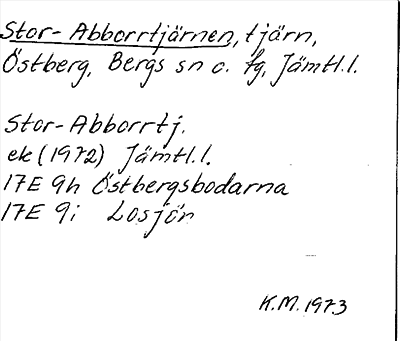 Stor-Abborrtjärnen, tjärn,
Östberg, Bergs sn o. fg, Jämtl.l.
Stor-Abborrtj.
ek (1972) Jämtl.l.
17E 9h Östbergsbodarna
17E 9i Losjön
K.M. 1973